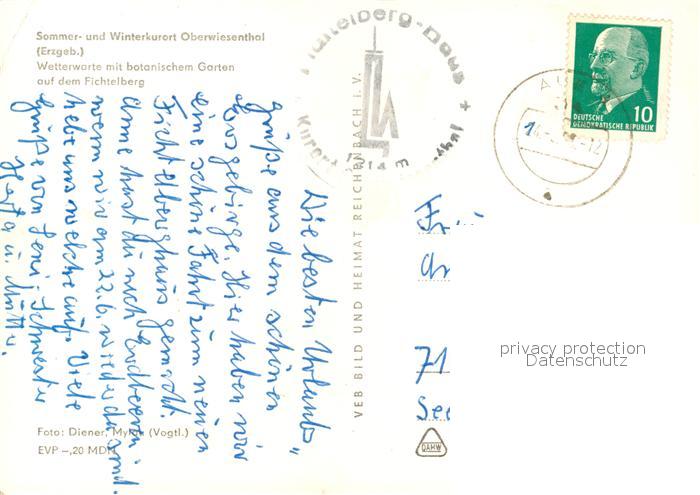 Sommer- und Winterkurort Oberwiesenthal
(Erzgeb.)
Wetterwarte mit botanischem Garten
auf dem Fichtelberg
Die besten Urlaubs-
grüße aus dem schönen
Erzgebirge. Hier haben wir
eine schöne Fahrt zum neuen
Fichtelberghaus gemacht.
Anne hast du noch Erdbeeren
wenn wir am 22.6. wieder da sind.
hebe uns welche auf. Viele
Grüße von Schwester
u. Mutti.
Foto: Diener, Mylau (Vogtl.)
EVP –,20 MDN
VEB BILD UND HEIMAT REICHENBACH I.V.
Fichtelberg-Haus
Kurort
1214 m
DEUTSCHE
DEMOKRATISCHE REPUBLIK
10
Fr
71
See
DAHW
privacy protection
Datenschutz